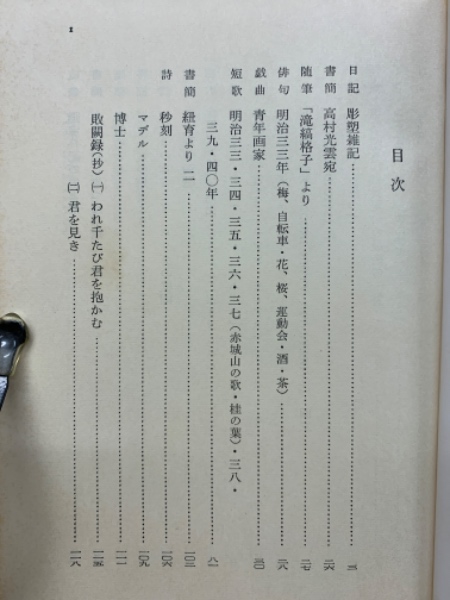 1
目次
日記 彫塑雑記……三
書簡 高村光雲宛……二六
随筆 「滝縞格子」より……二七
俳句 明治三三年(梅、自転車・花、桜、運動会・酒・茶)……二八
戯曲 青年画家……三〇
短歌 明治三三・三四・三五・三六・三七(赤城山の歌・桂の葉)・三八・
三九・四〇年……八一
書簡 紐育より 二……一〇三
詩 秒刻……一〇六
マデル……一〇九
博士……一一一
敗闕録(抄) ㈠ われ千たび君を抱かむ……一一五
㈡ 君を見き……一一八